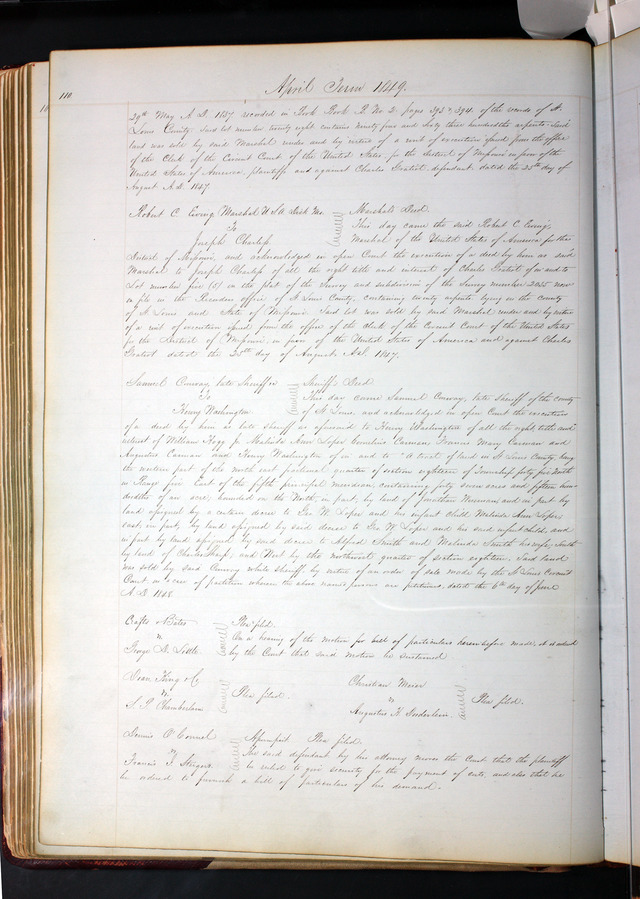 110
April Term 1849.
29th May A.D. 1847 recorded in Book R. No 2 pages 393 & 394 of the records of St
Louis County. Said lot number twenty eight contains ninety four and sixty three hundredths arpents. Said
land was sold by said Marshal under and by virtue of a writ of execution issued from the office
of the Clerk of the Circuit Court of the United States, for the District of Missouri in favor of the
United States of America, plaintiff and against Charles Gratiot, defendant dated the 25th day of
August A.D. 1847.
Robert C. Ewing, Marshal U.S.A. Dist Mo.
To
Joseph Charless
Marshal's Deed.
This day came the said Robert C. Ewing,
Marshal of the United States of America for the
District of Missouri, and acknowledged in open Court the execution of a deed by him as said
Marshal to Joseph Charless of all the right title and interest of Charles Gratiot of in and to
Lot number five (5) on the plat of the survey and subdivision of the Survey number 2035 now
on file in the Recorders office of St Louis County, containing twenty arpents lying in the county
of St Louis and State of Missouri. Said lot was sold by said Marshal under and by virtue
of a writ of execution issued from the office of the clerk of the Circuit Court of the United States
for the District of Missouri in favor of the United States of America and against Charles
Gratiot dated the 25th day of August A.D. 1847.
Samuel Conway, late Sheriff
To
Henry Washington
Sheriff's Deed
This day came Samuel Conway, late Sheriff of the county
of St Louis, and acknowledged in open Court the execution
of a deed by him as late sheriff as aforesaid to Henry Washington of all the right, title and
interest of William Hogg Jr. Malinda Ann Loper Cornelius Carman, Francis Mary Carman and
Augustus Carman and Henry Washington of in and to "A tract of land in St Louis County being
the western part of the north east fractional quarter of section eighteen of Township forty five North
in Range five East of the fifth principal meridian containing forty seven acres and fifteen hun-
dredths of an acre; bounded on the North, in part, by land of Jonathan and in part by
land assigned by a certain decree to Geo W. Loper and his infant child Malinda Ann Loper
east, in part, by land assigned by said decree to Geo. W. Loper and his said infant child, and
in part by land assigned by said decree to Alfred Smith and Malinda Smith his wife; south
by land of Charles; and West by the northwest quarter of section eighteen. Said land
was sold by said Conway while sheriff, by virtue of an order of sale made by the St Louis Circuit
Court in a case of partition wherein the above named persons are petitioners, dated the 6th day of June
A.D. 1848.
Crafts & Bates
vs
George D. Little.
Plea filed.
On a hearing of the motion for bill of particulars herein before made, it is ordered
by the Court that said motion be sustained
Dean King & Co
vs
S. P. Chamberlain
Plea filed.
Christian Moser
vs
Augustus H.
Plea filed.
Dennis O'Connel
vs
Francis F. Shrigers.
Assumpsit Plea filed.
The said defendant by his attorney moves the Court that the plaintiff
be ruled to give security for the payment of costs, and also that he
be ordered to furnish a bill of particulars of his demand.